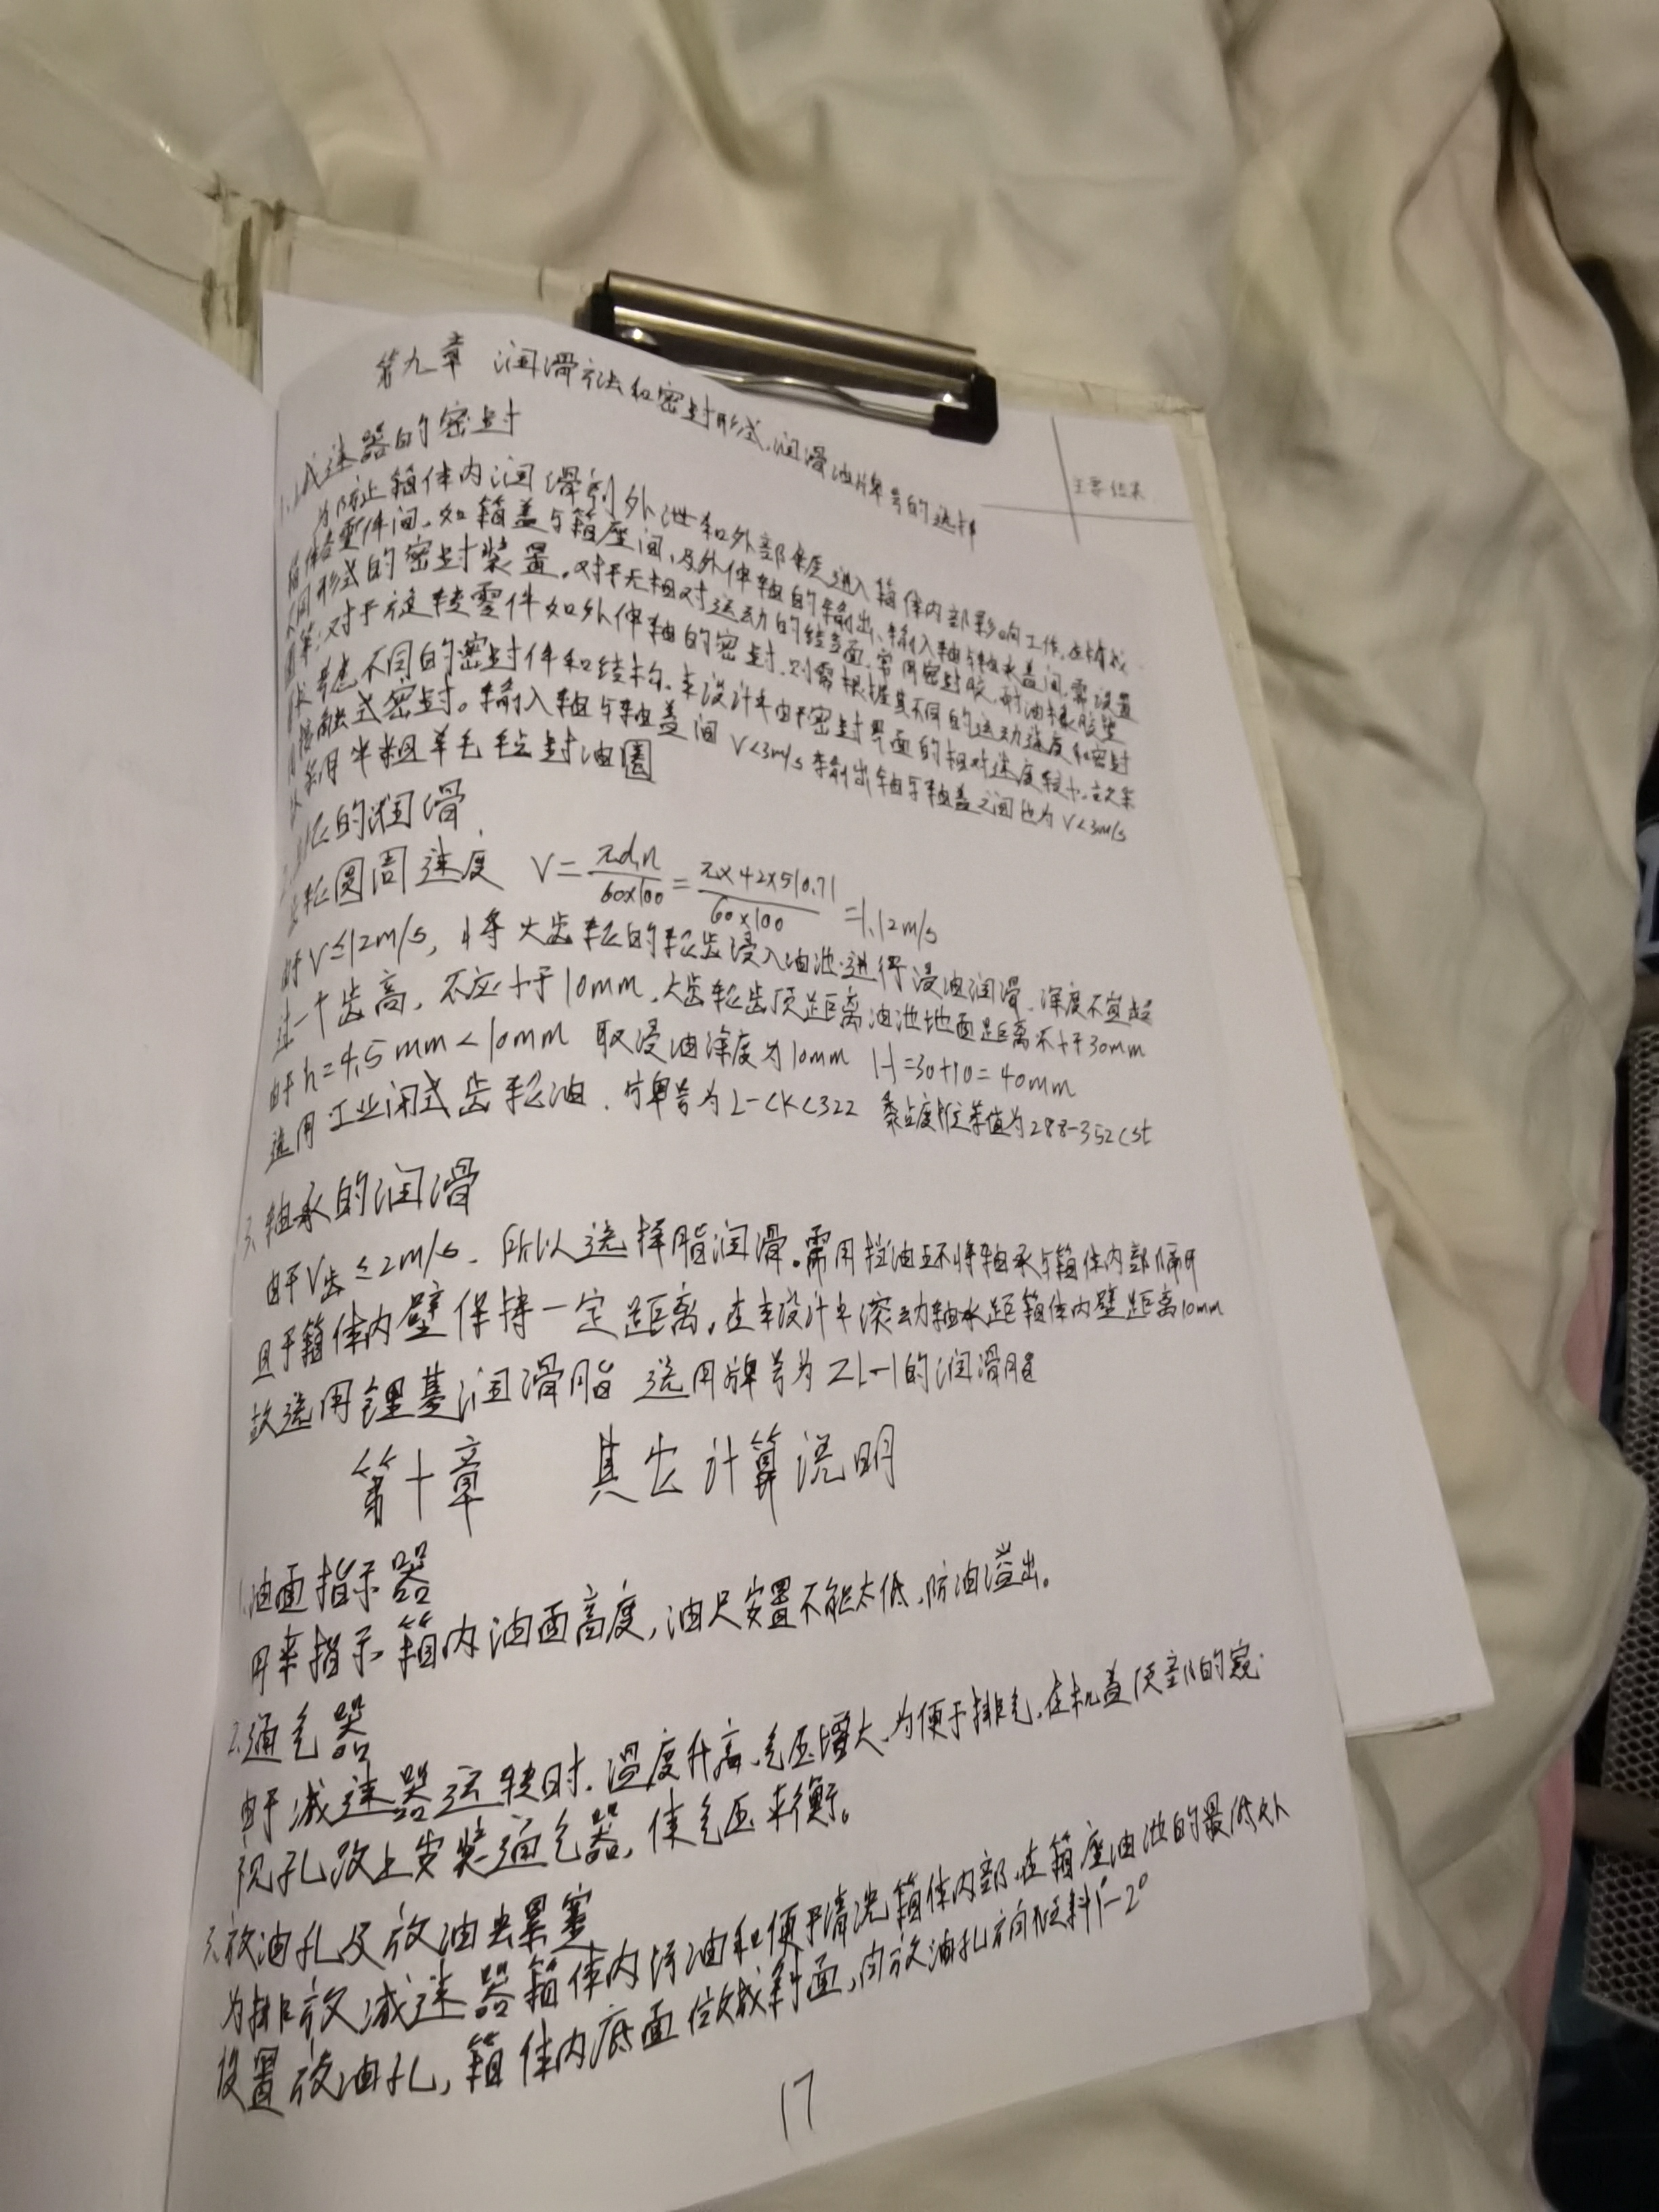 第九章 润滑方法和密封形式,润滑油牌号的选择
主要结果
1.减速器的密封
为防止箱体内润滑剂外泄和外部杂质进入箱体内部影响工作,在构成
箱体各零件间,如箱盖与箱座间,及外伸轴的输出、输入轴与轴承盖间,需设置
不同形式的密封装置。对于无相对运动的结合面,常用密封胶、耐油橡胶垫
圈等;对于旋转零件如外伸轴的密封,则需根据其不同的运动速度和密封
考虑不同的密封件和结构。本设计中由于密封界面的相对速度较小,故采
用接触式密封。输入轴与轴盖间V<3m/s 输出轴与轴盖之间也为V<3m/s
采用半粗羊毛毡封油圈
的润滑
圆周速度 V=πd₁n/60×100=π×42×510.71/60×100=1.12m/s
V≤12m/s,将大齿轮的轮齿浸入油池进行浸油润滑,深度不宜超
过一个齿高,不应小于10mm,大齿轮齿顶距离油池地面距离不小于30mm
由于h=4.5mm<10mm 取浸油深度为10mm H=30+10=40mm
选用工业闭式齿轮油,牌号为L-CKC322 黏度推荐值为288-352cSt
3.轴承的润滑
由于V齿≤2m/s,所以选择脂润滑。需用挡油环将轴承与箱体内部隔开
且于箱体内壁保持一定距离,在本设计中滚动轴承距箱体内壁距离10mm
故选用锂基润滑脂 选用牌号为ZL-1的润滑脂
第十章 其它计算说明
1.油面指示器
用来指示箱内油面高度,油尺安置不能太低,防油溢出。
2.通气器
由于减速器运转时,温度升高,气压增大,为便于排气,在机盖顶部的窥
视孔改上安装通气器,使气压平衡。
3.放油孔及放油螺塞
为排放减速器箱体内污油和便于清洗箱体内部,在箱座油池的最低处
设置放油孔,箱体内底面做成斜面,向放油孔方向倾斜1°-2°
17